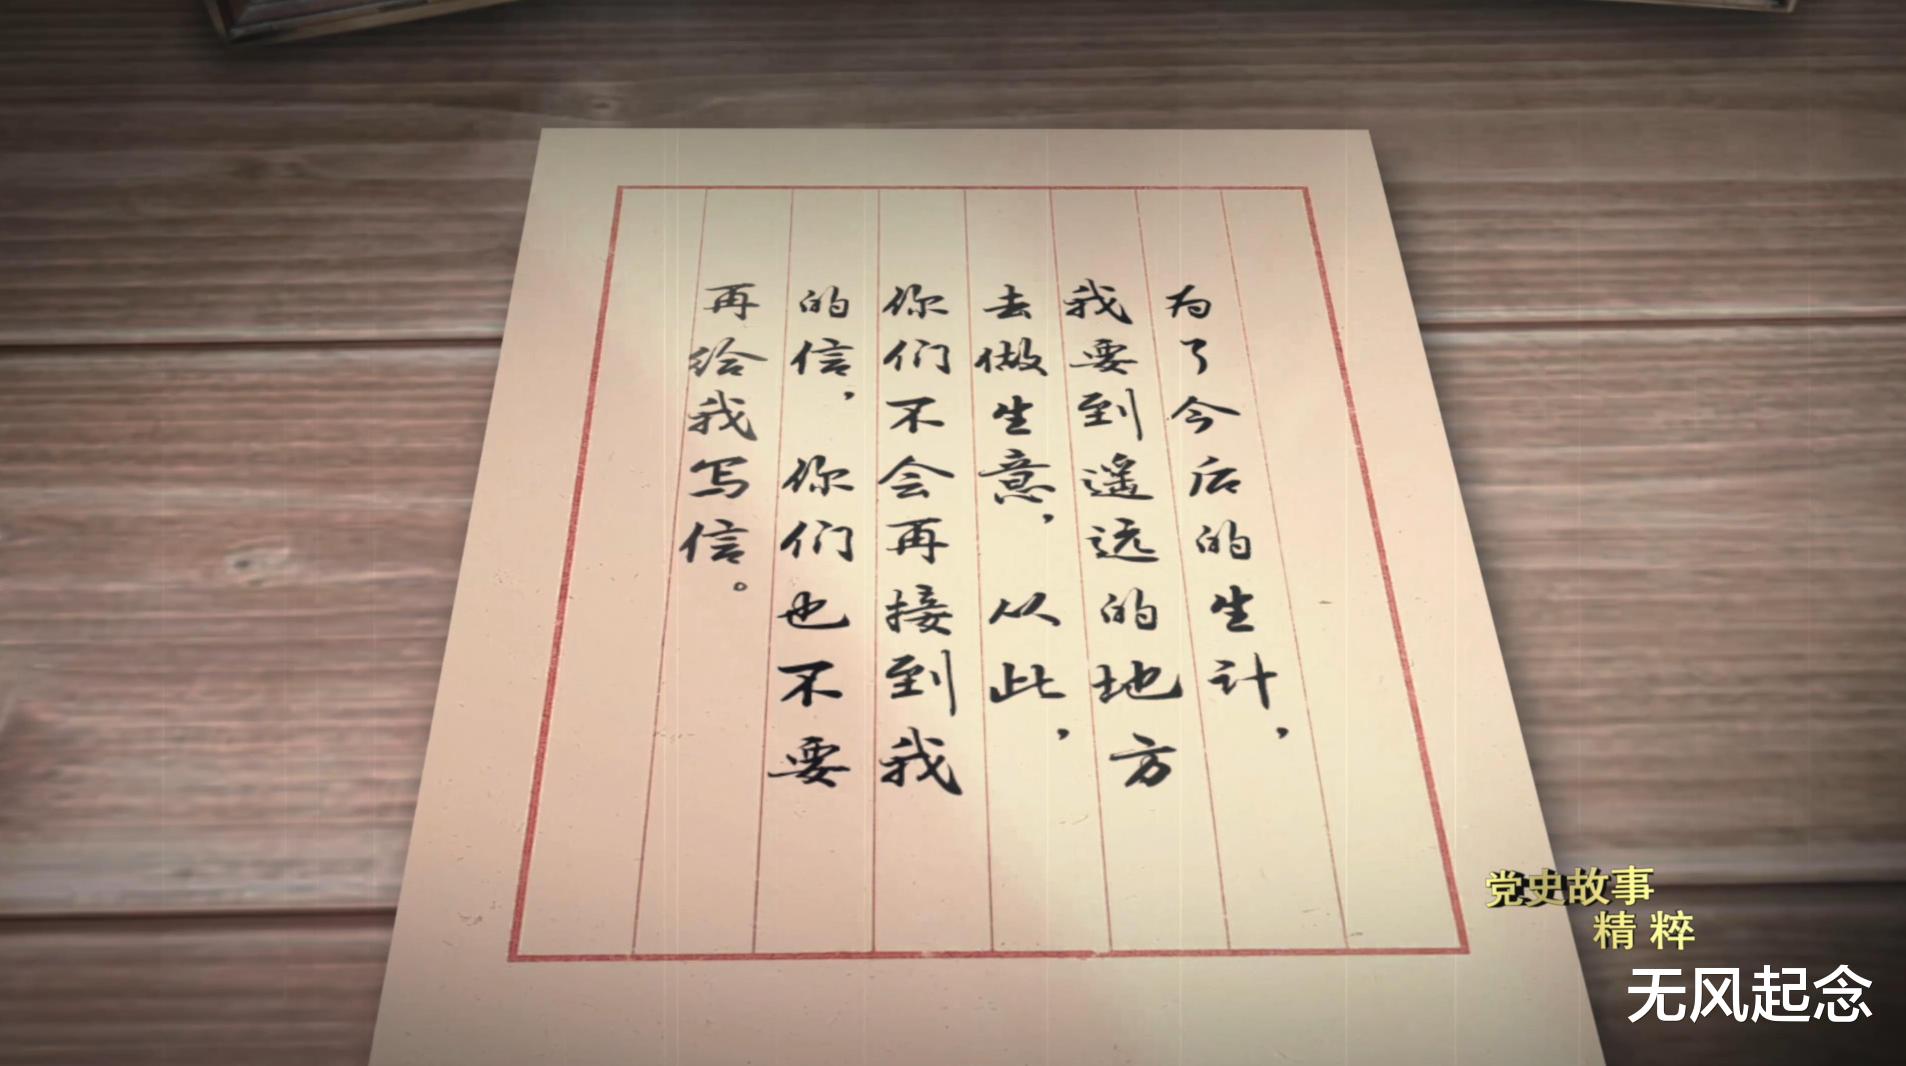 为了今后的生计，
我要到遥远的地方
去做生意，从此，
你们不会再接到我
的信，你们也不要
再给我写信。
党史故事
精粹
无风起念